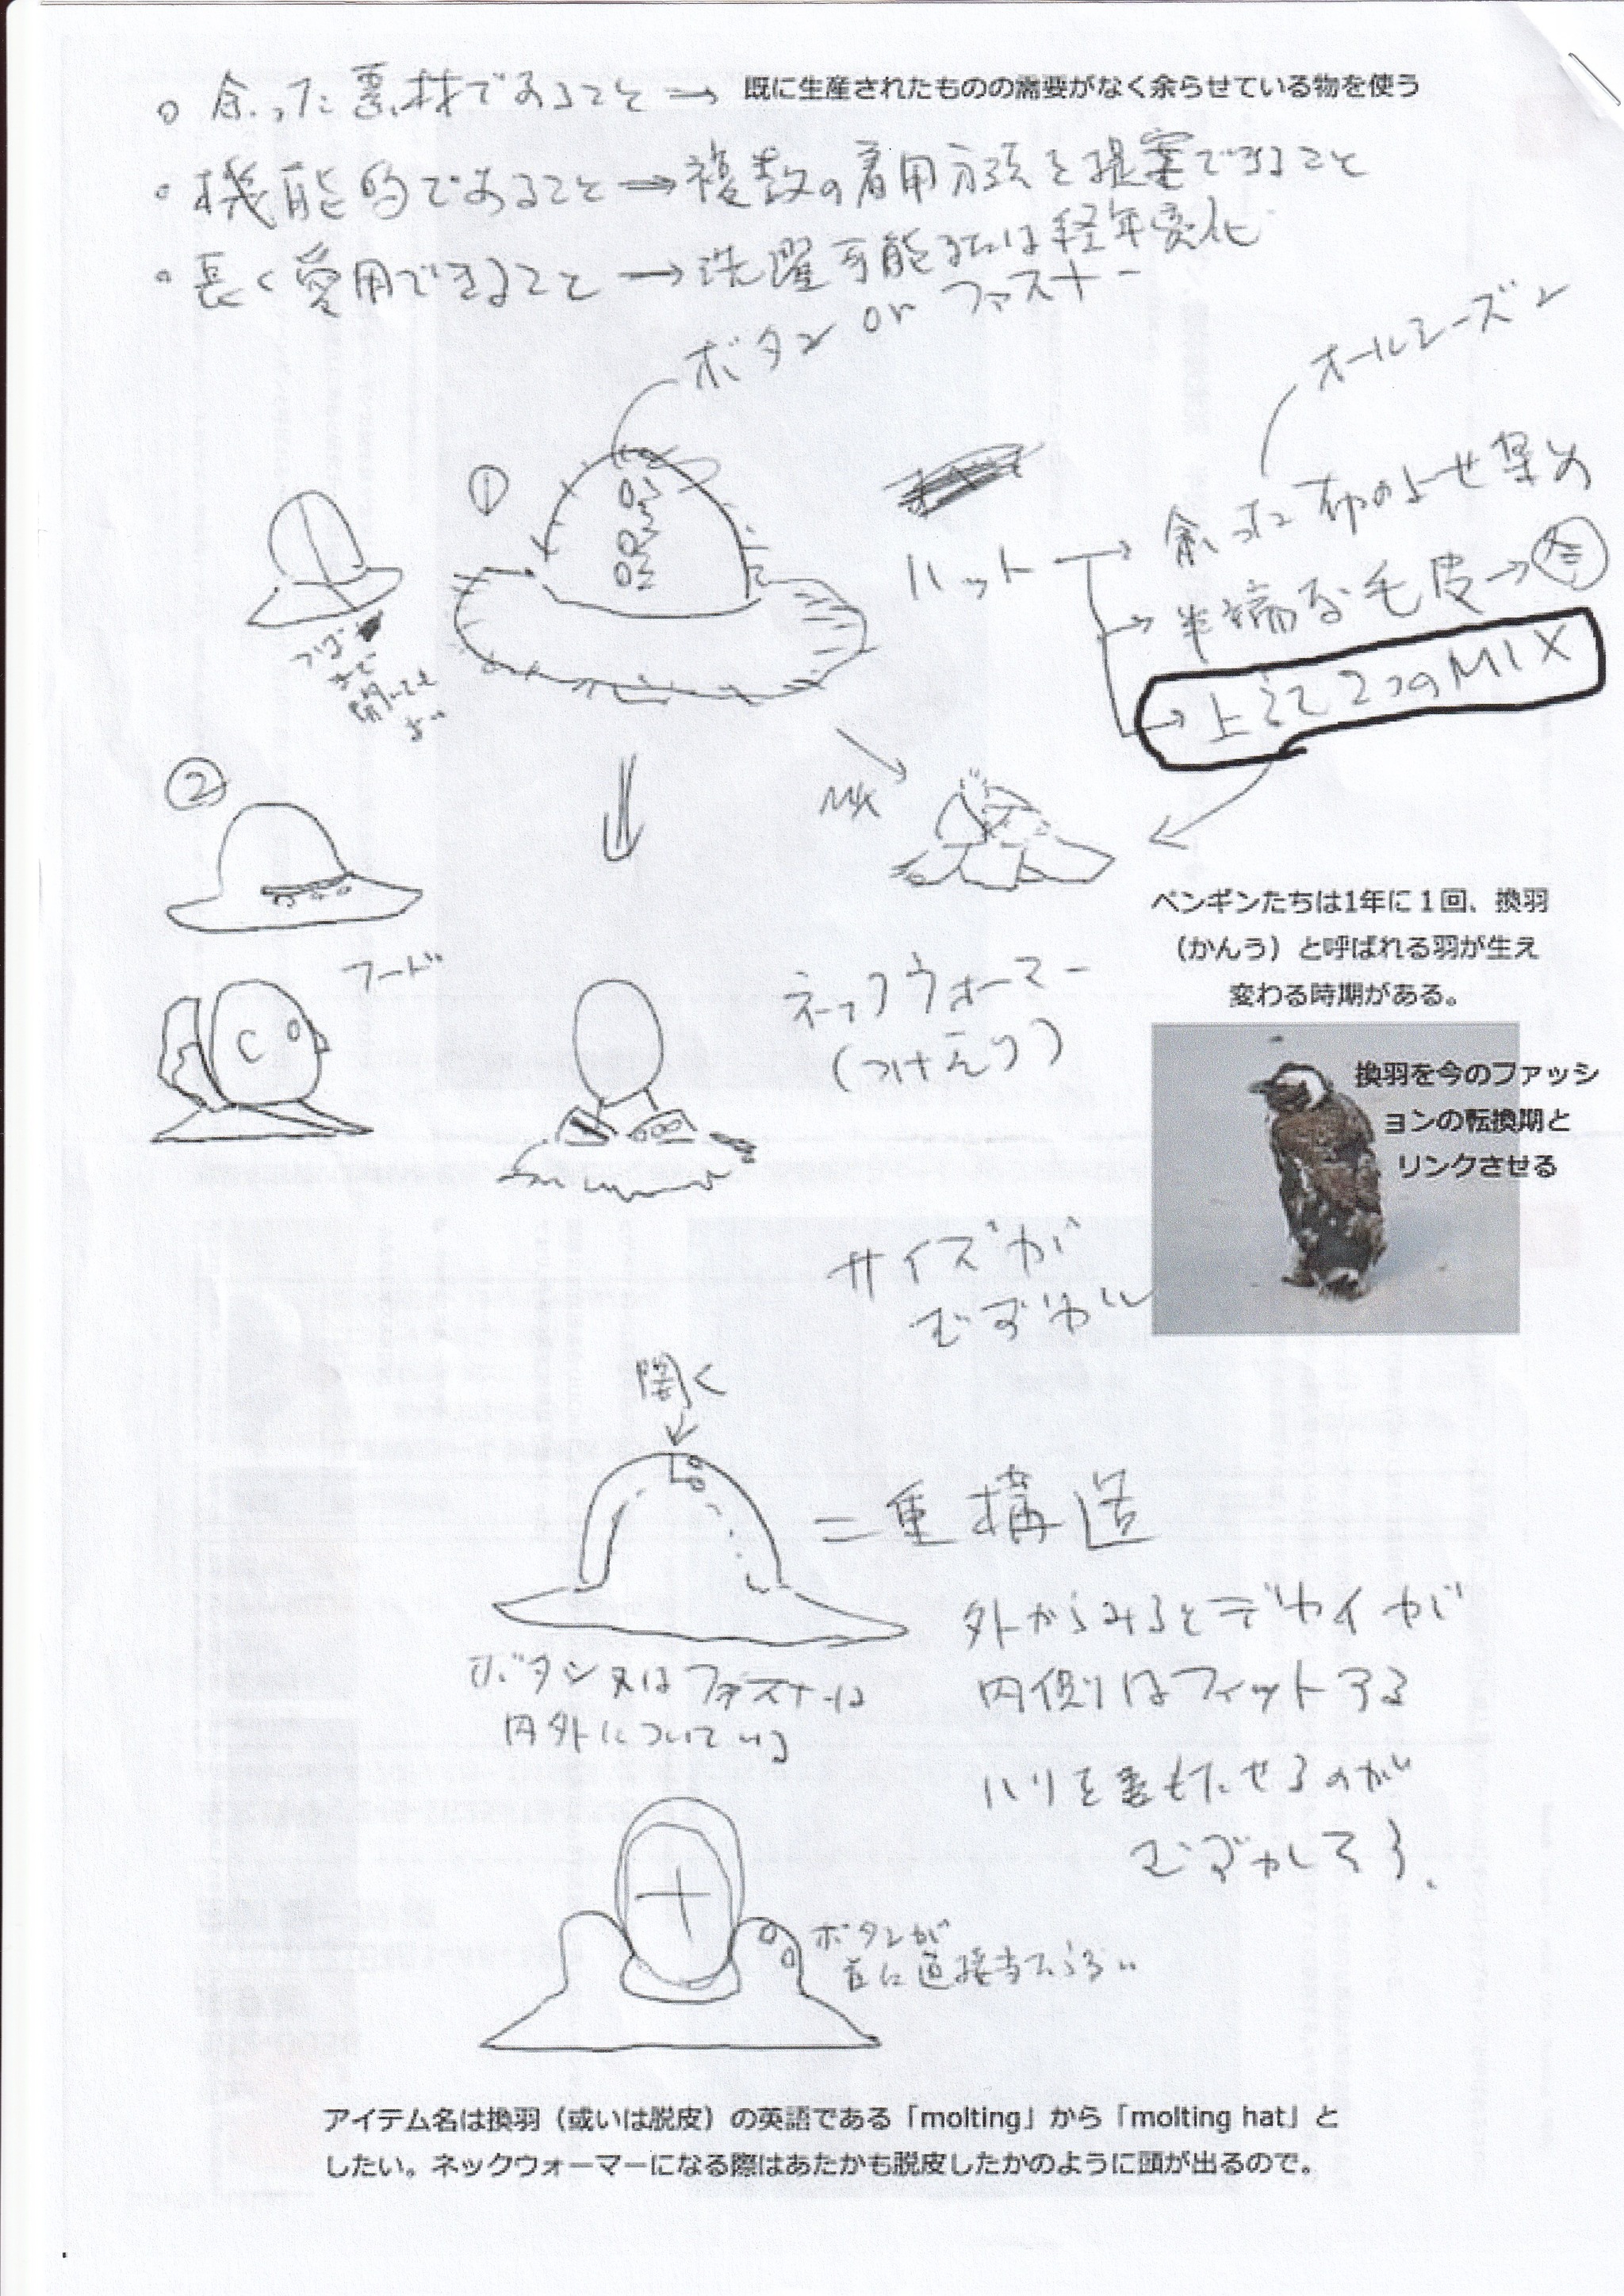 ○ 余った素材であること → 既に生産されたものの需要がなく余らせている物を使う
○ 機能的であること → 複数の着用方法を提案できること
○ 長く愛用できること → 洗濯可能または経年変化
ボタン or ファスナー
オールシーズン
①
ハット → 余った布のよせ集め
→ 半端な毛皮 → 冬
→ 上記2つのMIX
つば
まで
開いても
よい
②
MIX
フード
ネックウォーマー
(つけえり)
ペンギンたちは1年に1回、換羽
（かんう）と呼ばれる羽が生え
変わる時期がある。
換羽を今のファッシ
ョンの転換期と
リンクさせる
サイズが
むずかしい
開く
二重構造
外からみるとデカイが
内側はフィットする
ボタン又はファスナーは
内外についている
ハリをもたせるのが
むずかしそう。
ボタンが
首に直接当たらない
アイテム名は換羽（或いは脱皮）の英語である「molting」から「molting hat」と
したい。ネックウォーマーになる際はあたかも脱皮したかのように頭が出るので。